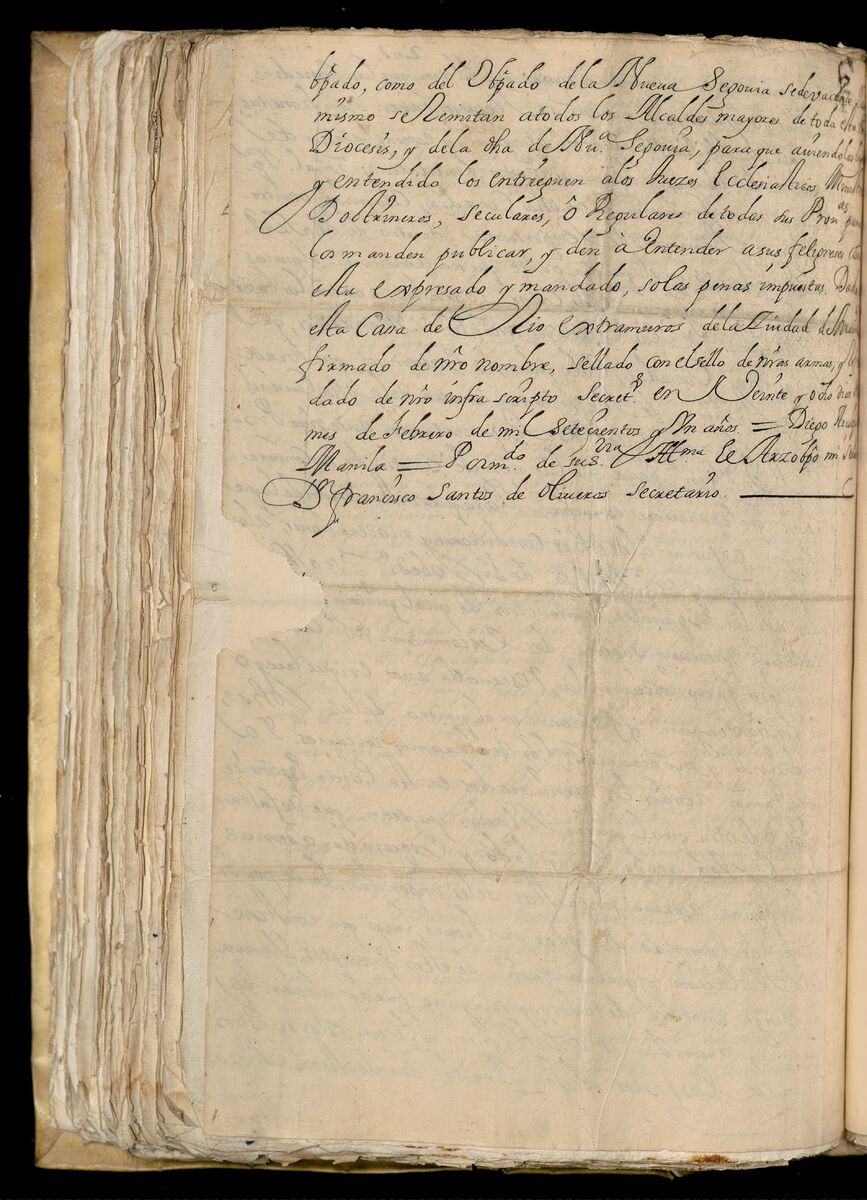 obpãdo, como del Obpãdo de la Nueua Segouia sedevacante,
mismo se Remitan atodos los Alcaldes mayores de toda esta
Diocesis, y dela dha de Nu.ª Segouia, para que auiendolos
y entendido los entreguen alos Juezes Ecclesiasticos,
Doctrineros, seculares, ô Regulares de todas sus Prou.as
los manden publicar, y den à Entender asus feligreses
esta expresado y mandado, solas penas impuestas.
esta Casa de Rio extramuros dela Ziudad de
firmado de nr̃o nombre, sellado con el sello de nr̃as armas, y
dado de nr̃o infra scripto Secret.º en Veinte y ocho dias
mes de Febrero de mil Setecientos y Vn años = Diego
Manila = Por m.do de su S.ria Ill.ma el Arzobpõ mi
Dn francisco Santos de Oliueros Secretario.